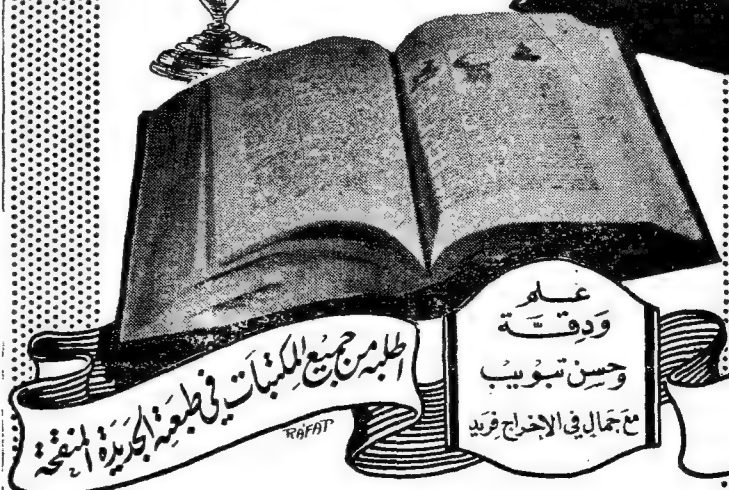 علم
وَدِقَّة
وحسن تبويب
مع جمال في الإخراج فريد
اطلبه من جميع المكتبات في طبعته الجديدة المنقحة
RAFAT